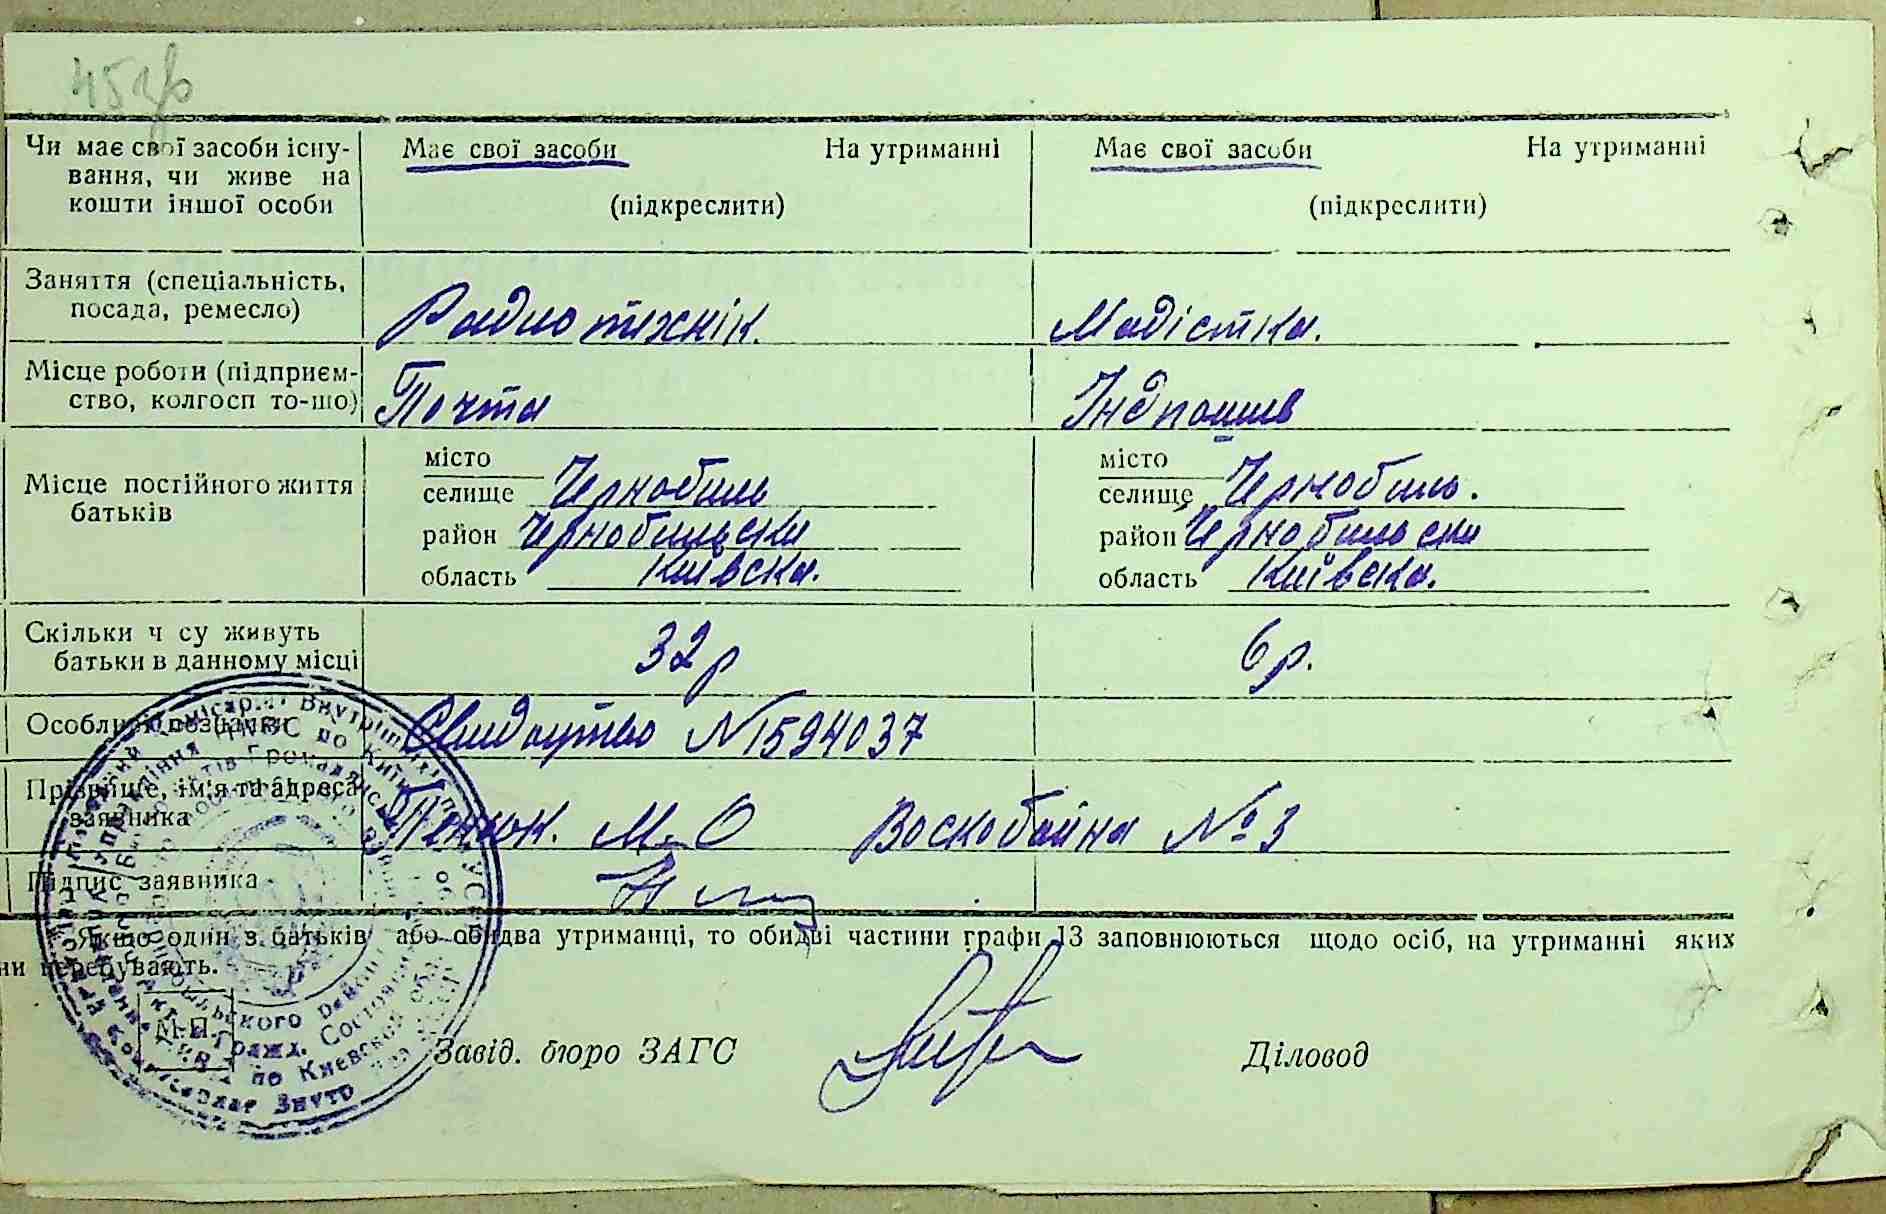 45зв
Чи має свої засоби існу-
вання, чи живе на
кошти іншої особи
Має свої засоби На утриманні
(підкреслити)
Має свої засоби На утриманні
(підкреслити)
Заняття (спеціальність,
посада, ремесло)
Радио техкік.
Модістка.
Місце роботи (підприєм-
ство, колгосп то-що)
Почта
Індпошив
Місце постійного життя
батьків
місто
селище Чернобиль
район Чернобильски
область Київска.
місто
селище Чернобиль.
район Чернобильски
область Київска.
Скільки ч су живуть
батьки в данному місці
32 р
6 р.
Особливі познаки
Свидоцтво №1594037
Прізвище, ім'я та адреса
заявника
М-О Воскобойна №3
Підпис заявника
Якщо один з батьків або обидва утриманці, то обидві частини графи 13 заповнюються щодо осіб, на утриманні яких
ни перебувають.
М.П.
Завід. бюро ЗАГС
Діловод